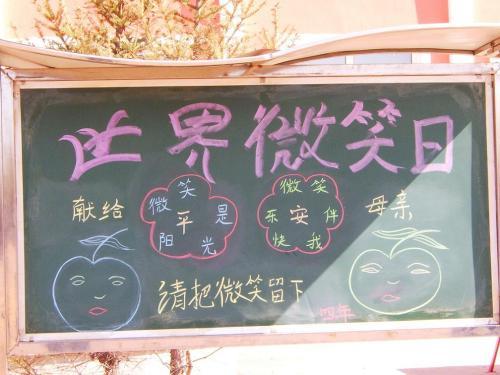 世界微笑日
献给
微笑
平是
阳光
微笑
乐安伴
快我
母亲
请把微笑留下
四年